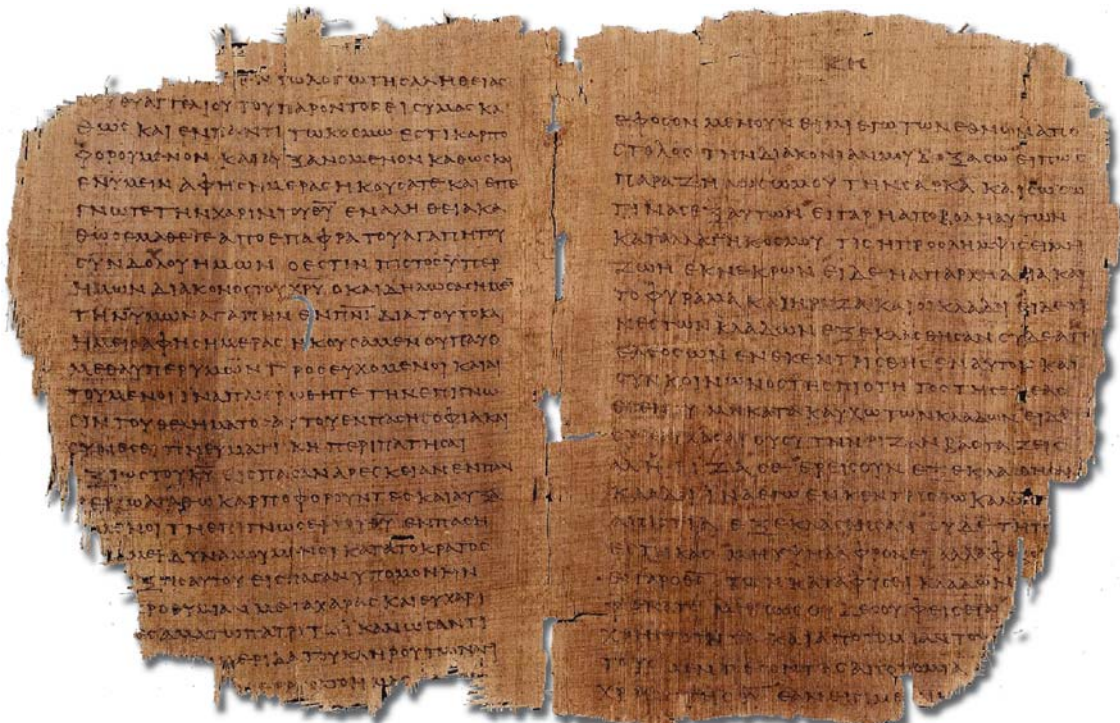 ΤΩΛΟΓΩΤΗϹΑΛΗΘΕΙΑϹ
ΕΥΑΓΓΕΛΙΟΥΤΟΥΠΑΡΟΝΤΟϹΕΙϹΥΜΑϹΚΑ
ΘΩϹΚΑΙΕΝΠΑΝΤΙΤΩΚΟϹΜΩΕϹΤΙΚΑΡΠΟ
ΦΟΡΟΥΜΕΝΟΝΚΑΙΑΥΞΑΝΟΜΕΝΟΝΚΑΘΩϹΚΑΙ
ΕΝΥΜΕΙΝΑΦΗϹΗΜΕΡΑϹΗΚΟΥϹΑΤΕΚΑΙΕΠΕ
ΓΝΩΤΕΤΗΝΧΑΡΙΝΤΟΥΘΥ̅ΕΝΑΛΗΘΕΙΑΚΑ
ΘΩϹΕΜΑΘΕΤΕΑΠΟΕΠΑΦΡΑΤΟΥΑΓΑΠΗΤΟΥ
ϹΥΝΔΟΛΟΥΗΜΩΝΟΕϹΤΙΝΠΙϹΤΟϹΥΠΕΡ
ΗΜΩΝΔΙΑΚΟΝΟϹΤΟΥΧΡΥ̅ΟΚΑΙΔΗΛΩϹΑϹΗΜΕΙ
ΤΗΝΥΜΩΝΑΓΑΠΗΝΕΝΠΝΙ̅ΔΙΑΤΟΥΤΟΚΑΙ
ΗΜΕΙϹΑΦΗϹΗΜΕΡΑϹΗΚΟΥϹΑΜΕΝΟΥΠΑΥΟ
ΜΕΘΑΥΠΕΡΥΜΩΝΠΡΟϹΕΥΧΟΜΕΝΟΙΚΑΙΑΙ
ΤΟΥΜΕΝΟΙΙΝΑΠΛΗΡΩΘΗΤΕΤΗΝΕΠΙΓΝΩ
ϹΙΝΤΟΥΘΕΛΗΜΑΤΟϹΑΥΤΟΥΕΝΠΑϹΗϹΟΦΙΑΚΑΙ
ϹΥΝΕϹΕΙΠΝΕΥΜΑΤΙΚΗΠΕΡΙΠΑΤΗϹΑΙ
ΞΙΩϹΤΟΥΚΥ̅ΕΙϹΠΑϹΑΝΑΡΕϹΚΕΙΑΝΕΝΠΑΝ
ΕΡΓΩΑΓΑΘΩΚΑΡΠΟΦΟΡΟΥΝΤΕϹΚΑΙΑΥΞΑ
ΜΕΝΟΙΤΗΕΠΙΓΝΩϹΕΙΤΟΥΘΥ̅ΕΝΠΑϹΗ
ΔΥΝΑΜΕΙΔΥΝΑΜΟΥΜΕΝΟΙΚΑΤΑΤΟΚΡΑΤΟϹ
ΗϹΑΥΤΟΥΕΙϹΠΑϹΑΝΥΠΟΜΟΝΗΝ
ΚΡΟΘΥΜΙΑΝΜΕΤΑΧΑΡΑϹΚΑΙΕΥΧΑΡΙ
ΑΜΑΤΩΠΑΤΡΙΤΩΙΚΑΝΩϹΑΝΤΙ
ΜΕΡΙΔΑΤΟΥΚΛΗΡΟΥΤΩΝΑΓΙ
ΚΗ
ΕΦΟϹΟΝΜΕΝΟΥΝΕΙΜΙΕΓΩΤΩΝΕΘΝΩΝΑΠΟ
ϹΤΟΛΟϹΤΗΝΔΙΑΚΟΝΙΑΝΜΟΥΔΟΞΑϹΩΕΙΠΩϹ
ΠΑΡΑΖΗΛΩϹΩΜΟΥΤΗΝϹΑΡΚΑΚΑΙϹΩϹΩ
ΤΙΝΑϹΕΞΑΥΤΩΝΕΙΓΑΡΗΑΠΟΒΟΛΗΑΥΤΩΝ
ΚΑΤΑΛΛΑΓΗΚΟϹΜΟΥΤΙϹΗΠΡΟϹΛΗΜΨΙϹΕΙΜΗ
ΖΩΗΕΚΝΕΚΡΩΝΕΙΔΕΗΑΠΑΡΧΗΑΓΙΑΚΑΙ
ΤΟΦΥΡΑΜΑΚΑΙΗΡΙΖΑΚΑΙΟΙΚΛΑΔΟΙΕΙΔΕΤΙ
ΝΕϹΤΩΝΚΛΑΔΩΝΕΞΕΚΛΑϹΘΗϹΑΝϹΥΔΕΑΓΡΙ
ΕΛΑΙΟϹΩΝΕΝΕΚΕΝΤΡΙϹΘΗϹΕΝΑΥΤΟΙϹΚΑΙ
ϹΥΝΚΟΙΝΩΝΟϹΤΗϹΠΙΟΤΗΤΟϹΤΗϹΕΛΑΙΑϹ
ΕΓΕΝΟΥΜΗΚΑΤΑΚΑΥΧΩΤΩΝΚΛΑΔΩΝΕΙΔΕ
ϹΥΚΑΥΧΑϹΑΙΟΥϹΥΤΗΝΡΙΖΑΝΒΑϹΤΑΖΕΙϹ
ΑΛΛΗΡΙΖΑϹΕΕΡΕΙϹΟΥΝΕΞΕΚΛΑϹΘΗϹΑΝ
ΚΛΑΔΟΙΙΝΑΕΓΩΕΝΚΕΝΤΡΙϹΘΩΚΑΛΩϹ
ΑΠΙϹΤΙΑΕΞΕΚΛΑϹΘΗϹΑΝϹΥΔΕΤΗΠΙ
ΕϹΤΗΚΑϹΜΗΥΨΗΛΑΦΡΟΝΕΙΑΛΛΑΦΟΒΟΥ
ΕΙΓΑΡΟΘϹ̅ΤΩΝΚΑΤΑΦΥϹΙΝΚΛΑΔΩΝ
ΜΗΠΩϹΟΥΔΕϹΟΥΦΕΙϹΕΤΑΙ
ΧΡΗϹΤΟΤΗΤΑΚΑΙΑΠΟΤΟΜΙΑΝΤΟΥ
ΤΟΥϹΜΕΝΠΕϹΟΝΤΑϹΑΠΟΤΟΜΙΑ
ΕΑΝΕΠΙΜΕ